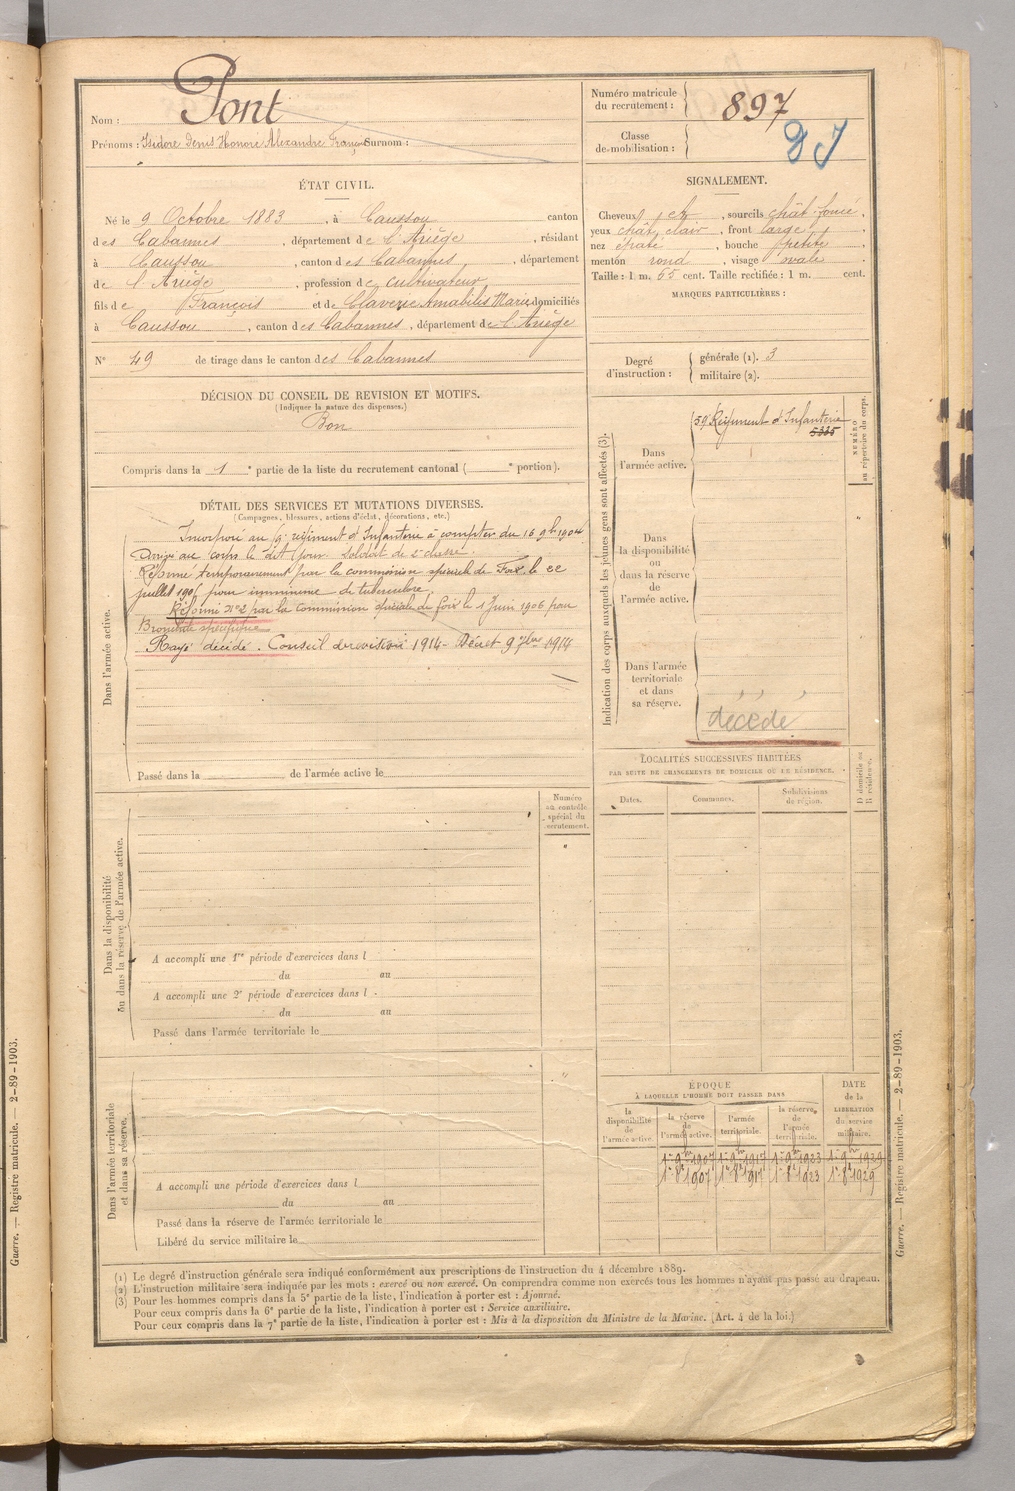 Nom : Pont
Prénoms : Isidore Denis Honoré Alexandre François Surnom :
Numéro matricule
du recrutement : 897
Classe
de mobilisation :
ÉTAT CIVIL.
Né le 9 Octobre 1883, à Caussou canton
des Cabannes, département de l'Ariège, résidant
à Caussou, canton des Cabannes, département
de l'Ariège, profession de cultivateur
fils de François et de Claverie Amabilis Marie domiciliés
à Caussou, canton des Cabannes, département de l'Ariège
N° 49 de tirage dans le canton des Cabannes
SIGNALEMENT.
Cheveux ch, sourcils chât. foncé,
yeux chât. clair, front large,
nez épaté, bouche petite,
menton rond, visage ovale.
Taille : 1 m. 65 cent. Taille rectifiée : 1 m. cent.
MARQUES PARTICULIÈRES :
Degré
d'instruction :
générale (1). 3
militaire (2).
DÉCISION DU CONSEIL DE REVISION ET MOTIFS.
(Indiquer la nature des dispenses.)
Bon
Compris dans la 1e partie de la liste du recrutement cantonal ( e portion).
DÉTAIL DES SERVICES ET MUTATIONS DIVERSES.
(Campagnes, blessures, actions d'éclat, décorations, etc.)
Dans l'armée active.
Incorporé au 59e régiment d'Infanterie à compter du 16 9bre 1904
Arrivé au corps le dit jour. Soldat de 2e classe.
Réformé temporairement par la commission spéciale de Foix le 22
juillet 1905 pour imminence de tuberculose.
Réformé N°2 par la Commission spéciale de Foix le 1er Juin 1906 pour
Bronchite spécifique
Rayé décédé. Conseil de revision 1914 - Décret 9 7bre 1914
Passé dans la de l'armée active le
Indication des corps auxquels les jeunes gens sont affectés (3).
Dans
l'armée active.
59e Régiment d'Infanterie
5335
NUMÉRO
au répertoire du corps.
Dans
la disponibilité
ou
dans la réserve
de
l'armée active.
Dans l'armée
territoriale
et dans
sa réserve.
décédé
LOCALITÉS SUCCESSIVES HABITÉES
PAR SUITE DE CHANGEMENTS DE DOMICILE OU DE RÉSIDENCE.
Dates.
Communes.
Subdivisions
de région.
D domicile ou
R résidence.
Numéro
au contrôle
spécial du
recrutement.
Dans la disponibilité
ou dans la réserve de l'armée active.
A accompli une 1re période d'exercices dans l
du au
A accompli une 2e période d'exercices dans l
du au
Passé dans l'armée territoriale le
Dans l'armée territoriale
et dans sa réserve.
A accompli une période d'exercices dans l
du au
Passé dans la réserve de l'armée territoriale le
Libéré du service militaire le
ÉPOQUE
À LAQUELLE L'HOMME DOIT PASSER DANS
la
disponibilité
de
l'armée active.
la réserve
de
l'armée active.
l'armée
territoriale.
la réserve
de
l'armée
territoriale.
DATE
de la
LIBÉRATION
du service
militaire.
1er 9bre 1907 1er 9bre 1917 1er 9bre 1923 1er 9bre 1929
1er 8bre 1907 1er 8bre 1917 1er 8bre 1923 1er 8bre 1929
(1) Le degré d'instruction générale sera indiqué conformément aux prescriptions de l'instruction du 4 décembre 1889.
(2) L'instruction militaire sera indiquée par les mots : exercé ou non exercé. On comprendra comme non exercés tous les hommes n'ayant pas passé au drapeau.
(3) Pour les hommes compris dans la 5e partie de la liste, l'indication à porter est : Ajourné.
Pour ceux compris dans la 6e partie de la liste, l'indication à porter est : Service auxiliaire.
Pour ceux compris dans la 7e partie de la liste, l'indication à porter est : Mis à la disposition du Ministre de la Marine. (Art. 4 de la loi.)
Guerre. — Registre matricule. — 2-89-1903.
Guerre. — Registre matricule. — 2-89-1903.